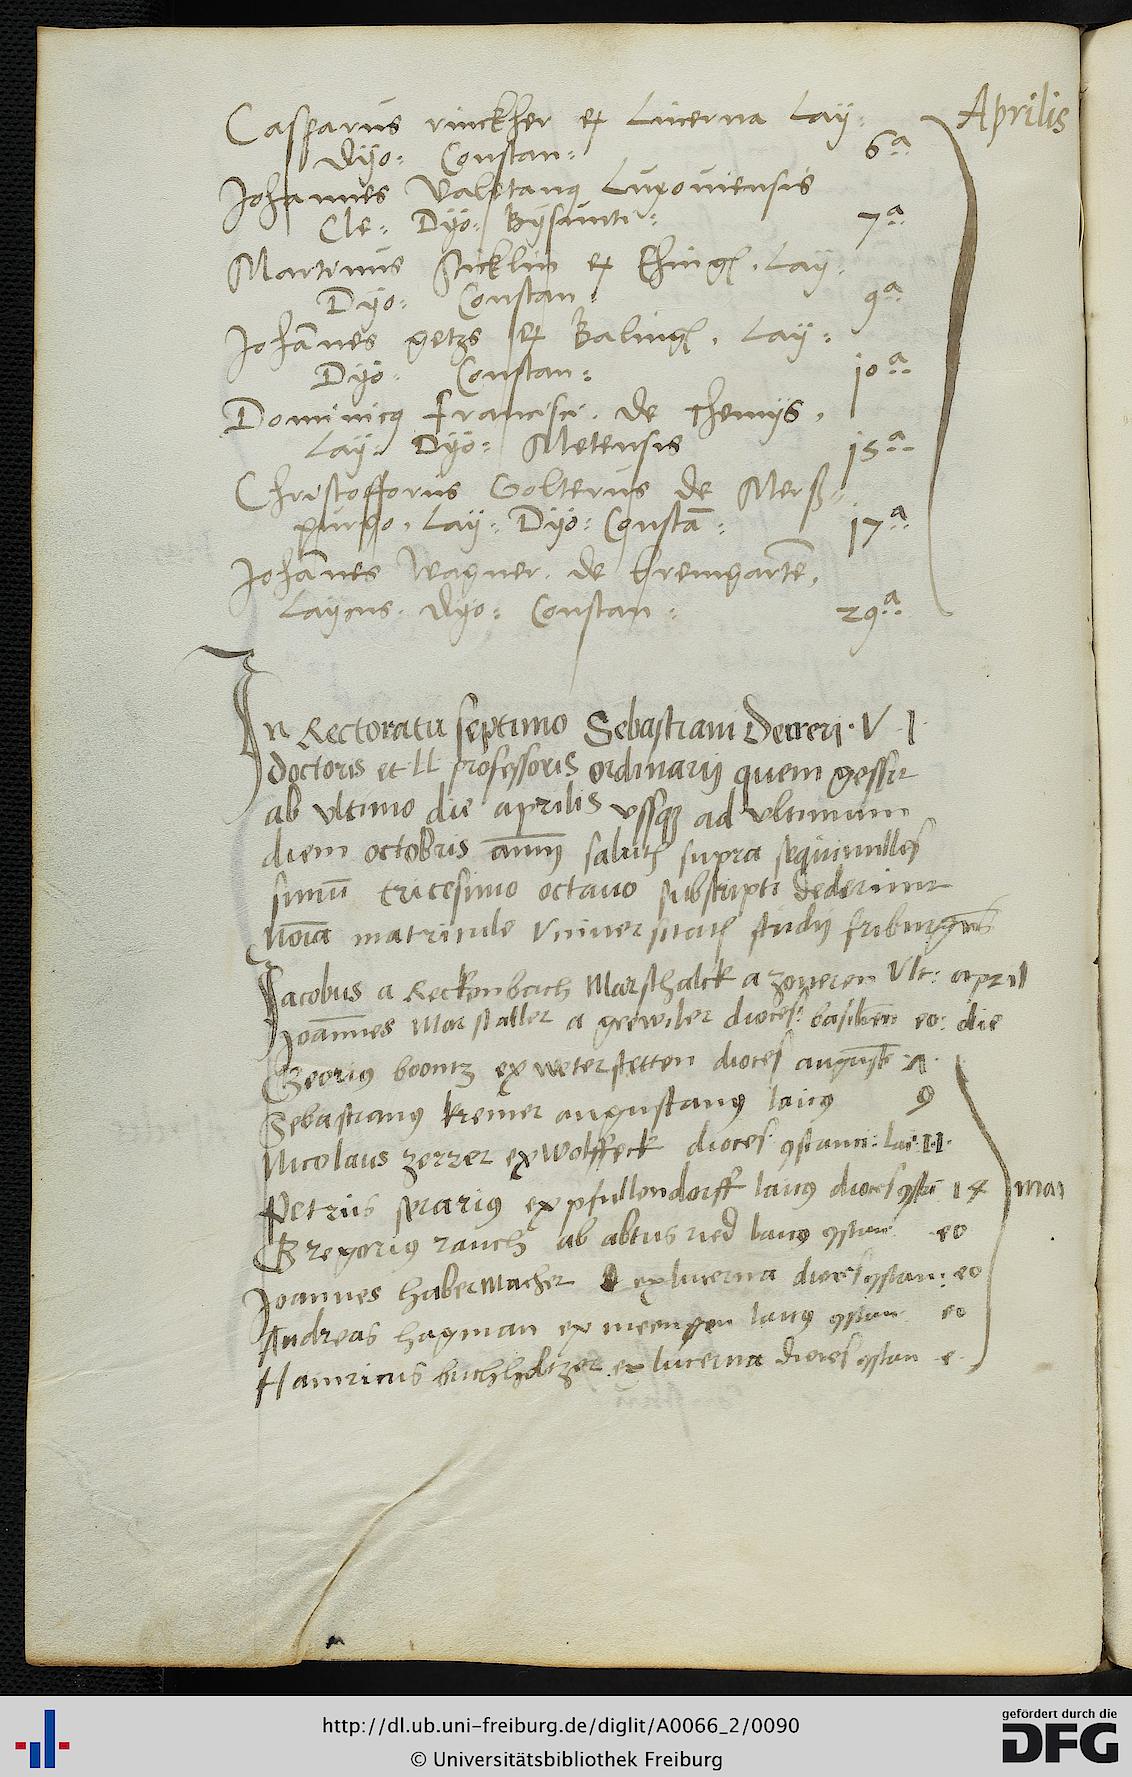 Casparus rinckher ex Lucerna Lay:
Aprilis
Dyo: Constan: 6a
Johannes Valetanus Luxoviensis
Cle: Dyo: Bysunti: 7a
Martinus Sticklin ex Ehing. Lay:
Dyo: Constan: 9a
Johannes getzs ex Baling. Lay:
Dyo: Constan: 10a
Dominicus Francisci. de
Lay: Dyo: Metensis 15a
Christofforus Golterus de Merß=
purgo. Lay: Dyo: Constan: 17a
Johannes Wagner. de Bremgarten.
Laycus. dyo: Constan: 29a
In Rectoratu septimo Sebastiani Derreri. V I
doctoris et LL professoris ordinarij quem gessit
ab vltimo die aprilis vssque ad vltimum
diem octobris salutis supra sesquimilles
simum tricesimo octavo subscripti dederunt
noia matricule Vniversitatis studij friburgens
Jacobus a Reckenbach Marschalck a Vlt: april
Joannes Marstaller a gebwiler dioces: basilien eo: die
Georius boontz ex weterstetten dioces august 7.
Sebastianus kremer augustanus laicus 9
Nicolaus zerrer ex Wolffeck dioces: constanti: lai: 11.
Petrus serarius ex pfullendorff laicus dioces constan 14 mai
Gregorius rauch ab abtus ried laicus constan eo
Joannes habermacher ex lucerna dioces constan: eo
Andreas hagman ex meengen laicus constan eo
Hainricus buchholtzer ex lucerna dioces constan e.
http://dl.ub.uni-freiburg.de/diglit/A0066_2/0090
© Universitätsbibliothek Freiburg
gefördert durch die
DFG